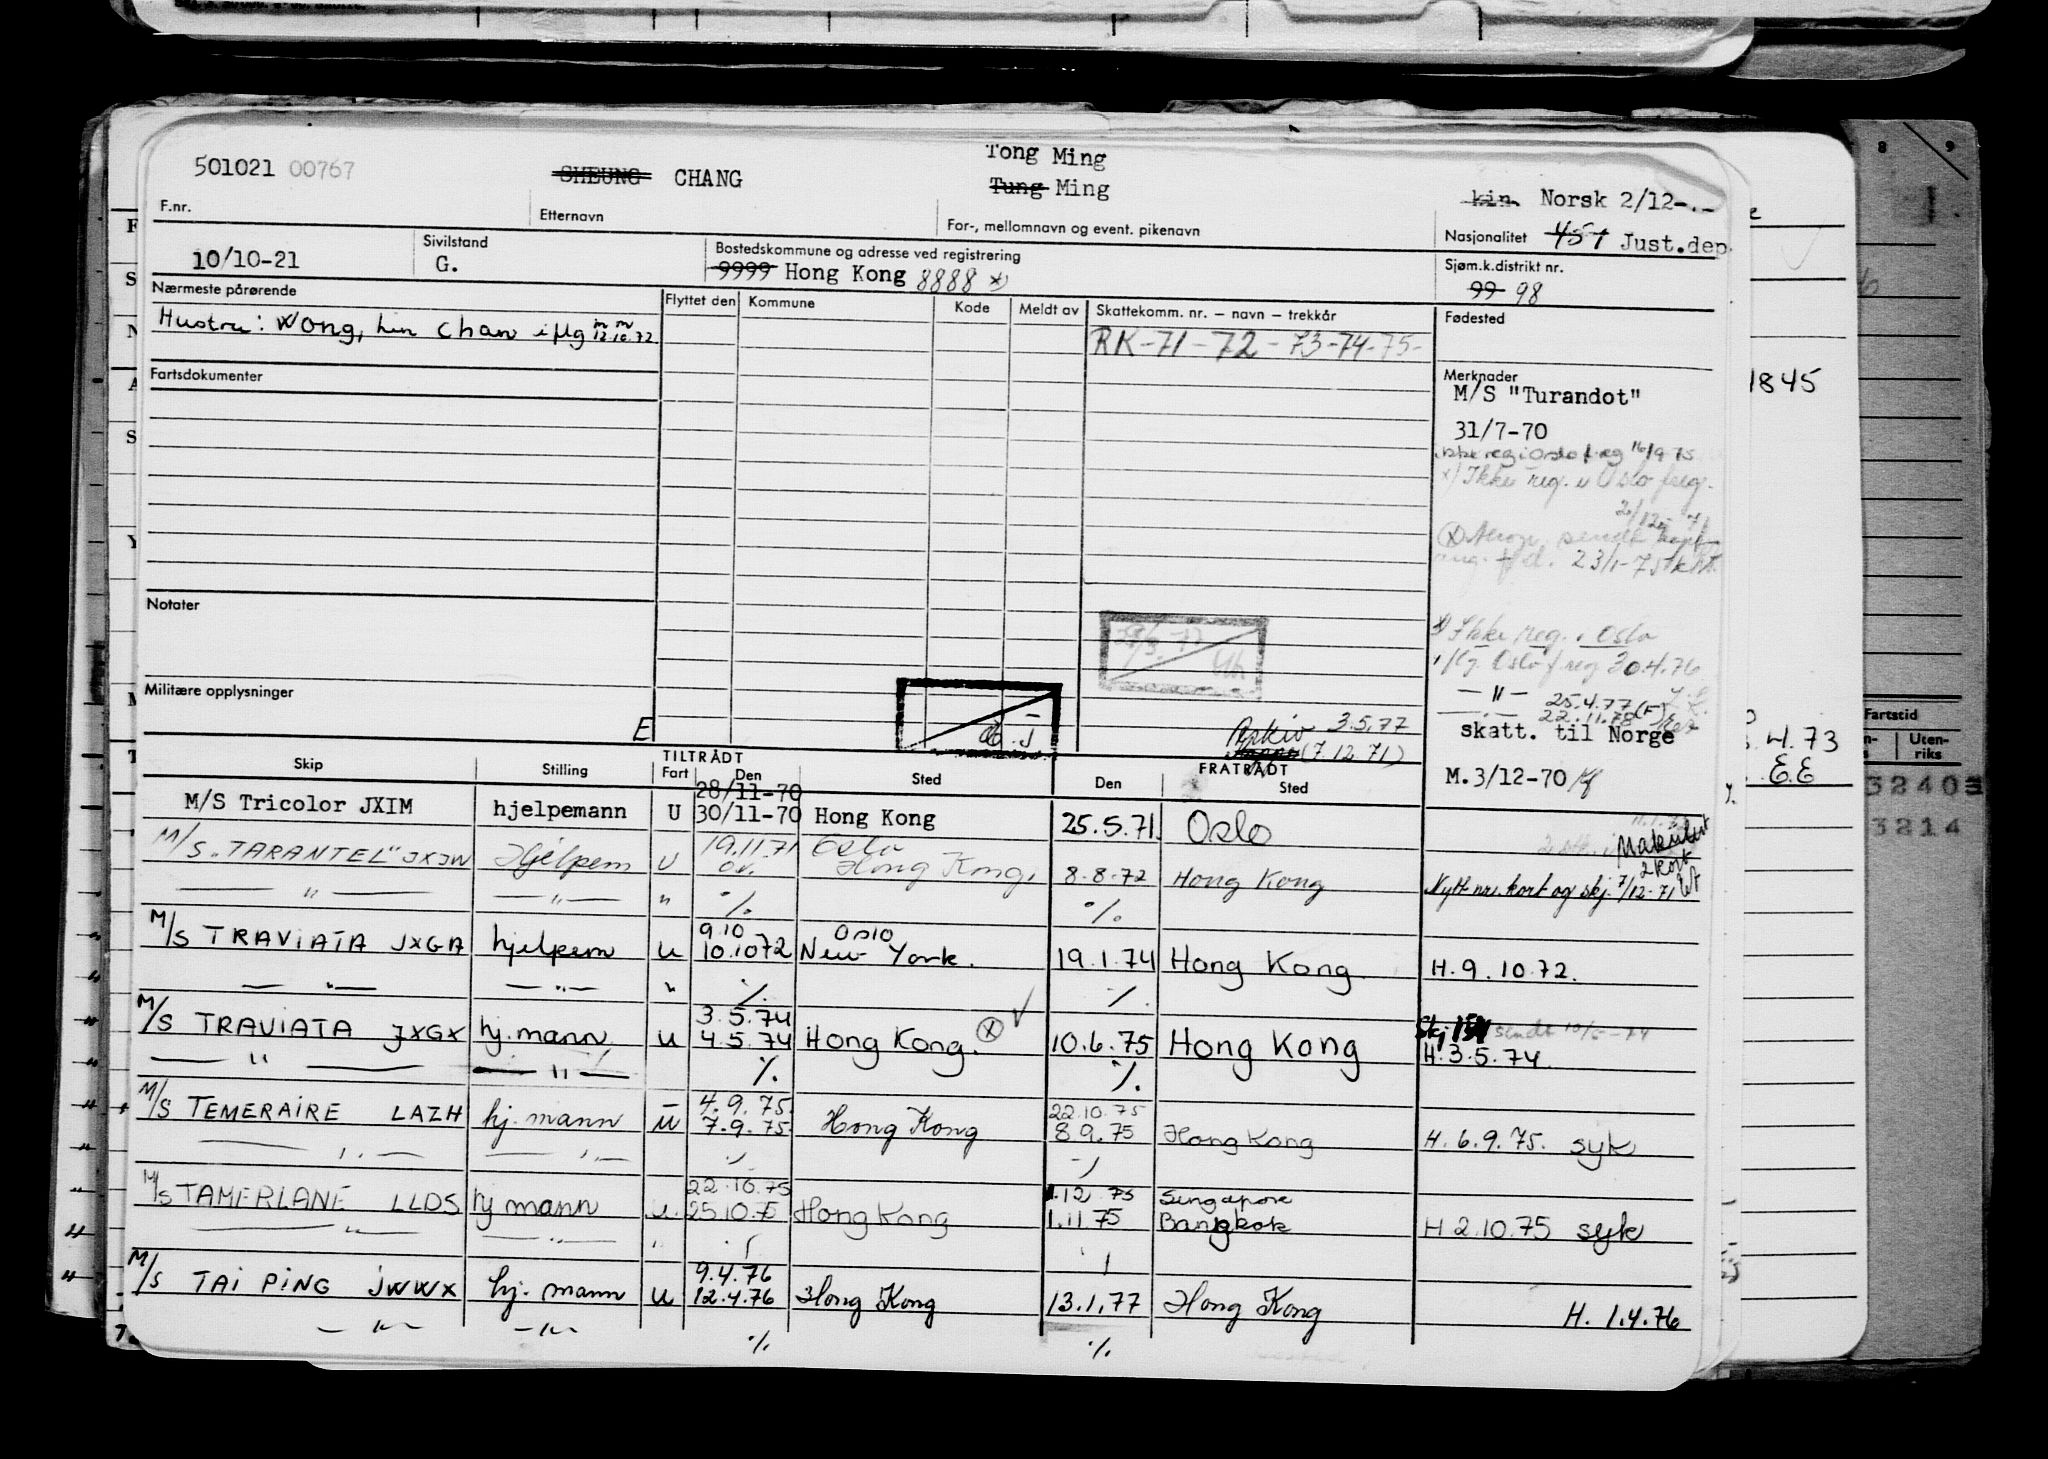 Tong Ming
501021 00767 SHEUNG CHANG Tung Ming
kin. Norsk 2/12-
F.nr. Etternavn For-, mellomnavn og event. pikenavn Nasjonalitet 457 Just.dep.
10/10-21 Sivilstand G. Bostedskommune og adresse ved registrering Sjøm.k.distrikt nr.
9999 Hong Kong 8888 x) 99 98
Nærmeste pårørende Flyttet den Kommune Kode Meldt av Skattekomm. nr. – navn – trekkår Fødested
Hustru: Wong, Chan 12.10.72 RK-71-72-73-74-75-
Fartsdokumenter Merknader
M/S "Turandot"
31/7-70
ikke reg i Oslo f.reg 16/9 75
x) Ikke reg. i Oslo freg.
2/12-71
sendt
23/1-75
Notater
Ikke reg. i Oslo
Oslo f reg 30.4.76
— " — 25.4.77
22.11.78
Militære opplysninger
E
Arkiv 3.5.77
(7.12.71)
skatt. til Norge
M.3/12-70
TILTRÅDT FRATRÅDT
Skip Stilling Fart Den Sted Den Sted
28/11-70
M/S Tricolor JXIM hjelpemann U 30/11-70 Hong Kong 25.5.71. Oslo
Makulert
2 kort
19.11 71 Oslo
M/S "TARANTEL" JXJW Hjelpem U Hong Kong. 8-8-72 Hong Kong Nytt nr. kort og skj. 7/12-71
— " — — " — " % %
9.10 Oslo
M/S TRAVIATA JXGA hjelpem u 10.10 72 New York. 19.1.74 Hong Kong. H. 9.10.72.
— " — — " — " % %
3.5.74
M/S TRAVIATA JXGX hj. mann u 4.5.74 Hong Kong. (x) 10.6.75 Hong Kong Skj 151 sendt 10/5-74
H. 3.5.74.
— " — — " — % %
4.9.75. 22.10.75
M/S TEMERAIRE LAZH hj. mann u 7.9.75. Hong Kong 8.9.75 Hong Kong H. 6.9.75. syk
22.10.75 1.12 75 Singapore
M/S TAMERLANE LLDS hj mann u. 25.10.75 Hong Kong 1.11.75 Bangkok H 2.10.75 syk
9.4.76
M/S TAI PING JWWX hj. mann u 12.4.76 Hong Kong 13.1.77 Hong Kong H. 1.4.76
— " — — " — % %
8 9
1845
Fartstid
Utenriks
4.73
E.E
32403
3214